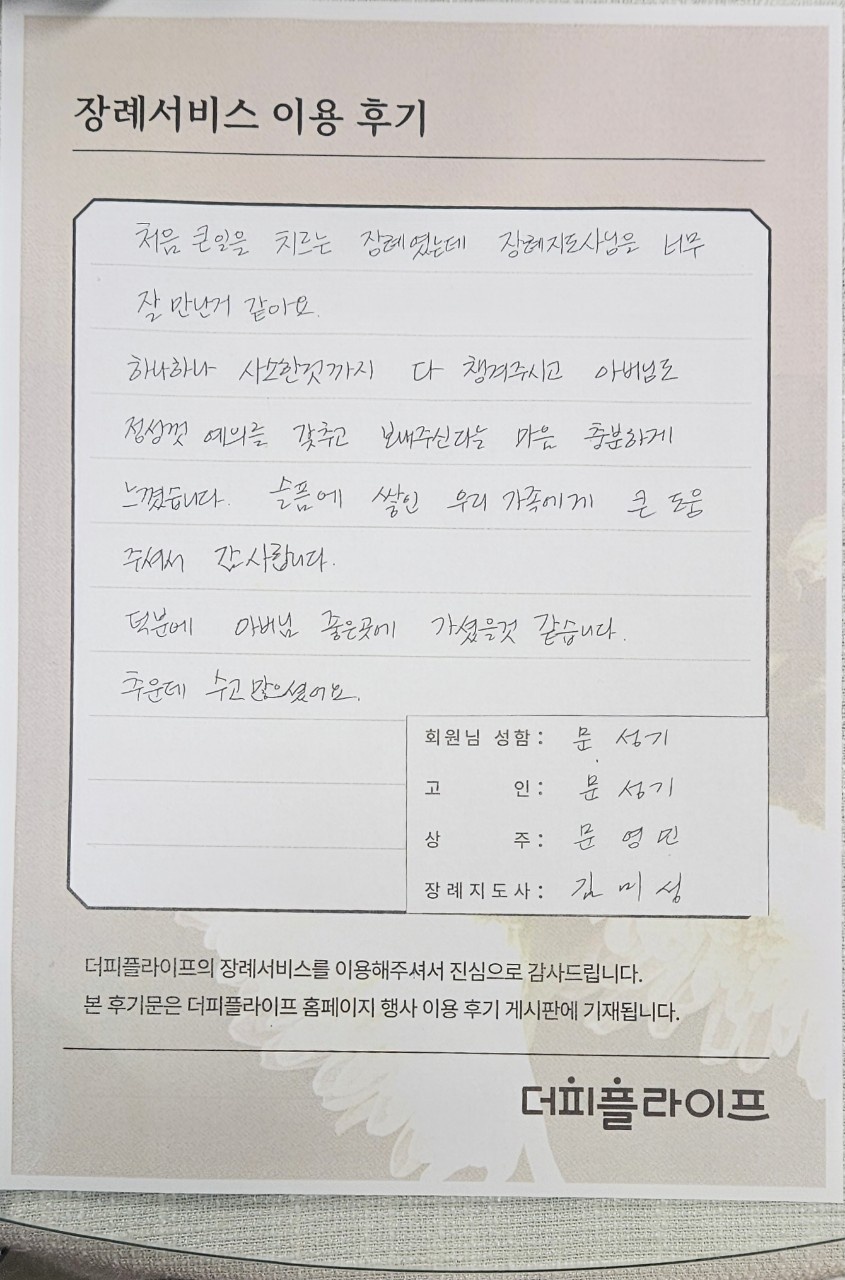 장례서비스 이용 후기
처음 큰일을 치르는 장례였는데 장례지도사님을 너무
잘 만난거 같아요.
하나하나 사소한것까지 다 챙겨주시고 아버님도
정성껏 예의를 갖추고 보내주신다는 마음 충분하게
느꼈습니다. 슬픔에 쌓인 우리 가족에게 큰 도움
주셔서 감사합니다.
덕분에 아버님 좋은곳에 가셨을것 같습니다.
추운데 수고 많으셨어요.
회원님 성함 : 문 성기
고 인 : 문 성기
상 주 : 문 영민
장례지도사 : 김 미성
더피플라이프의 장례서비스를 이용해주셔서 진심으로 감사드립니다.
본 후기문은 더피플라이프 홈페이지 행사 이용 후기 게시판에 기재됩니다.
더피플라이프